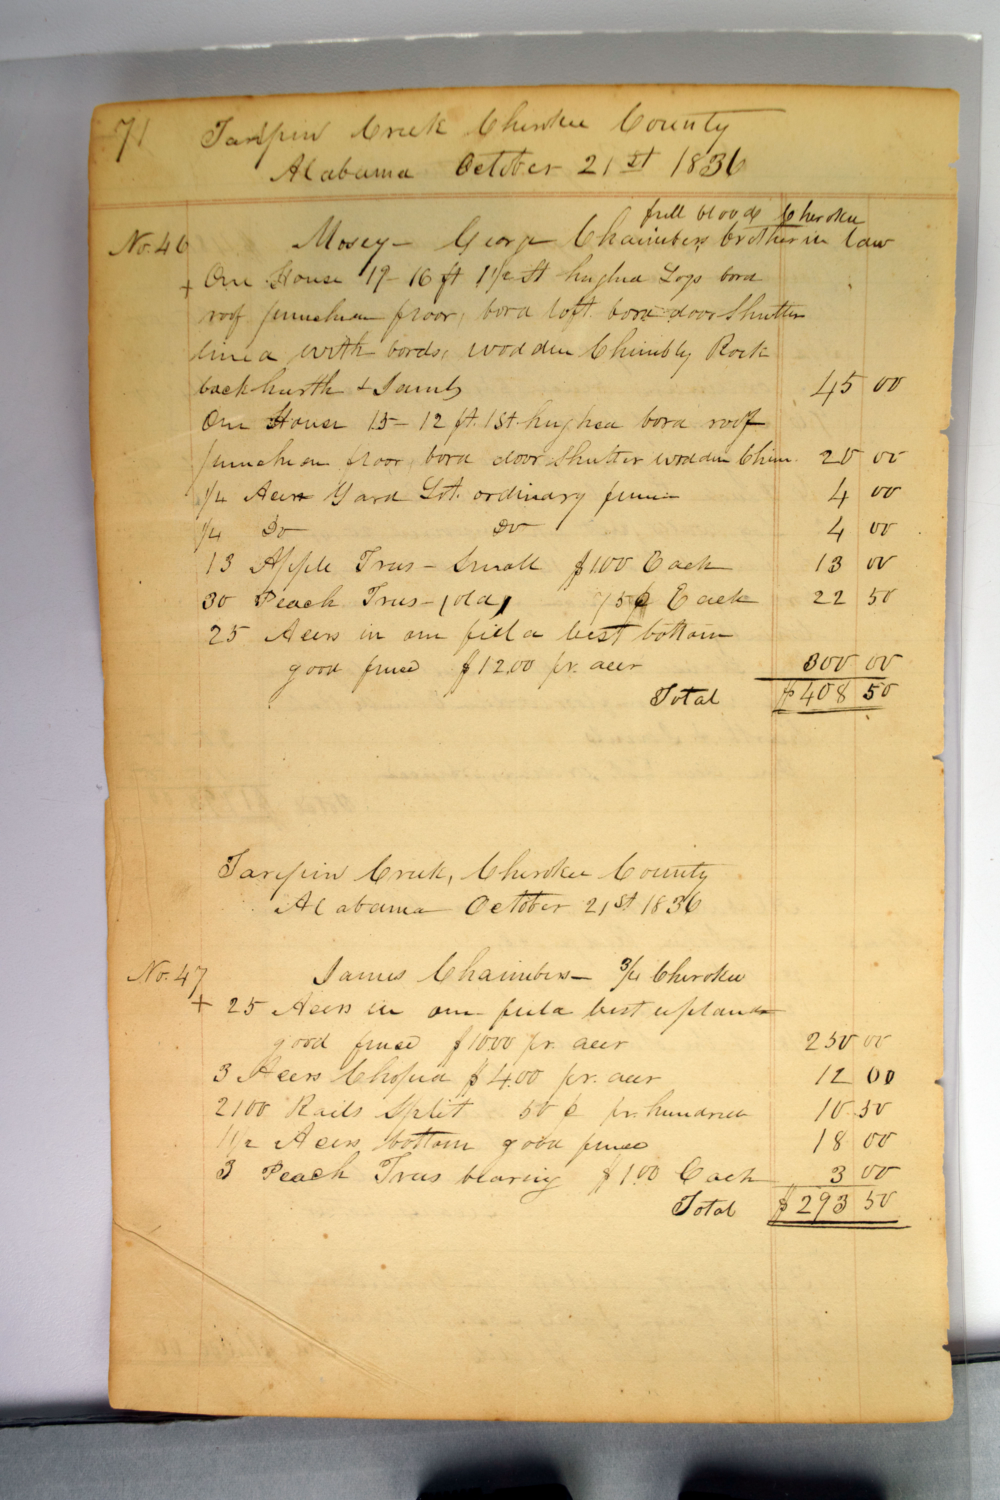 71 Tarripin Creek Cherokee County
Alabama October 21st 1836
full bloods Cherokee
No. 46 Mosey - George Chaimbers brother in law
+ One House 19-16 ft 1 1/2 St hughed Logs bord
roof punchean floor, bord loft bord door Shutter
lined with bords, wodden Chimbly Rock
back hurth & Jambs 45 00
One House 15-12 ft. 1 St. hughed bord roof
punchean floor, bord door Shutter wodden Chim. 20 00
1/4 Acer Yard Lot. ordinary fence 4 00
1/4 Do Do 4 00
13 Apple Trees - Small $1.00 Each 13 00
30 Peach Trees - (old) 75¢ Each 22 50
25 Acers in one field best bottom
good fence $12.00 pr. acer 300 00
Total $408 50
Tarripin Creek, Cherokee County
Alabama October 21st 1836
No. 47 James Chaimbers - 3/4 Cherokee
+ 25 Acers in one field best upland
good fence $10.00 pr. acer 250 00
3 Acers Choped $4.00 pr. acer 12 00
2100 Rails Split 50¢ pr. hundred 10 50
1 1/2 Acers bottom good fence 18 00
3 Peach Trees bearing $1.00 Each 3 00
Total $293 50